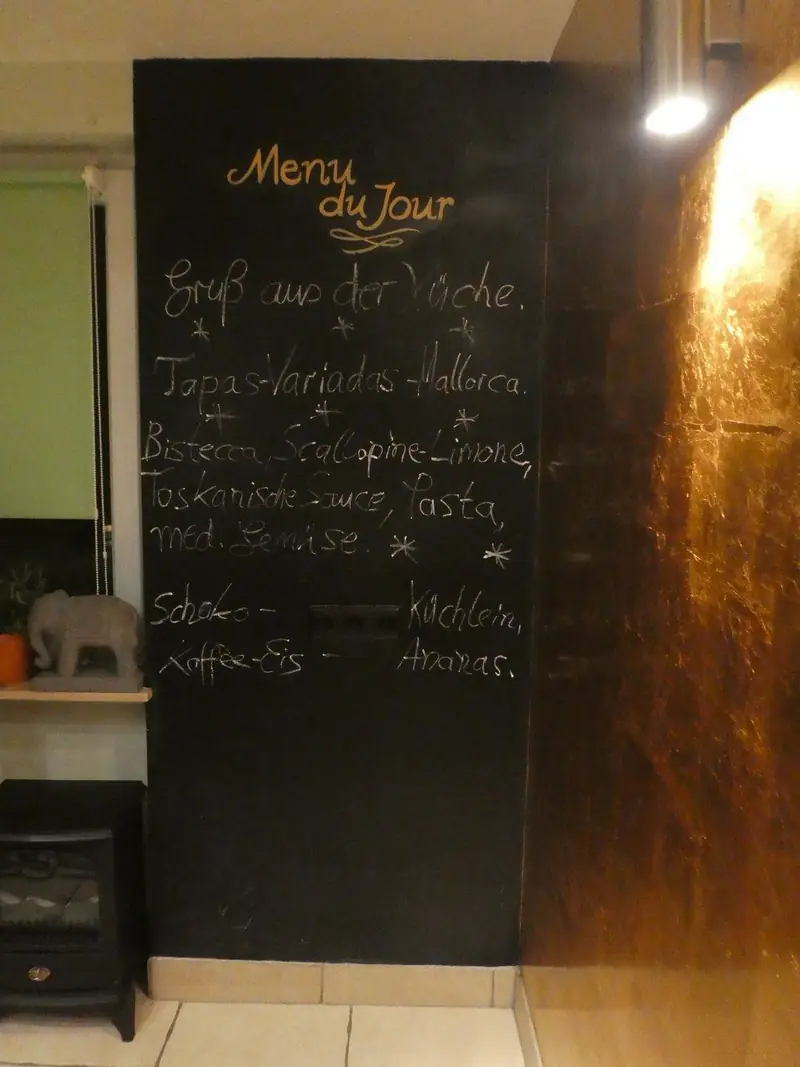 Menu
du Jour
Gruß aus der Küche.
* * *
Tapas-Variadas-Mallorca.
* * *
Bistecca, Scallopine-Limone,
Toskanische Sauce, Pasta,
med. Gemüse. * *
Schoko- Küchlein,
Kaffee-Eis - Ananas.